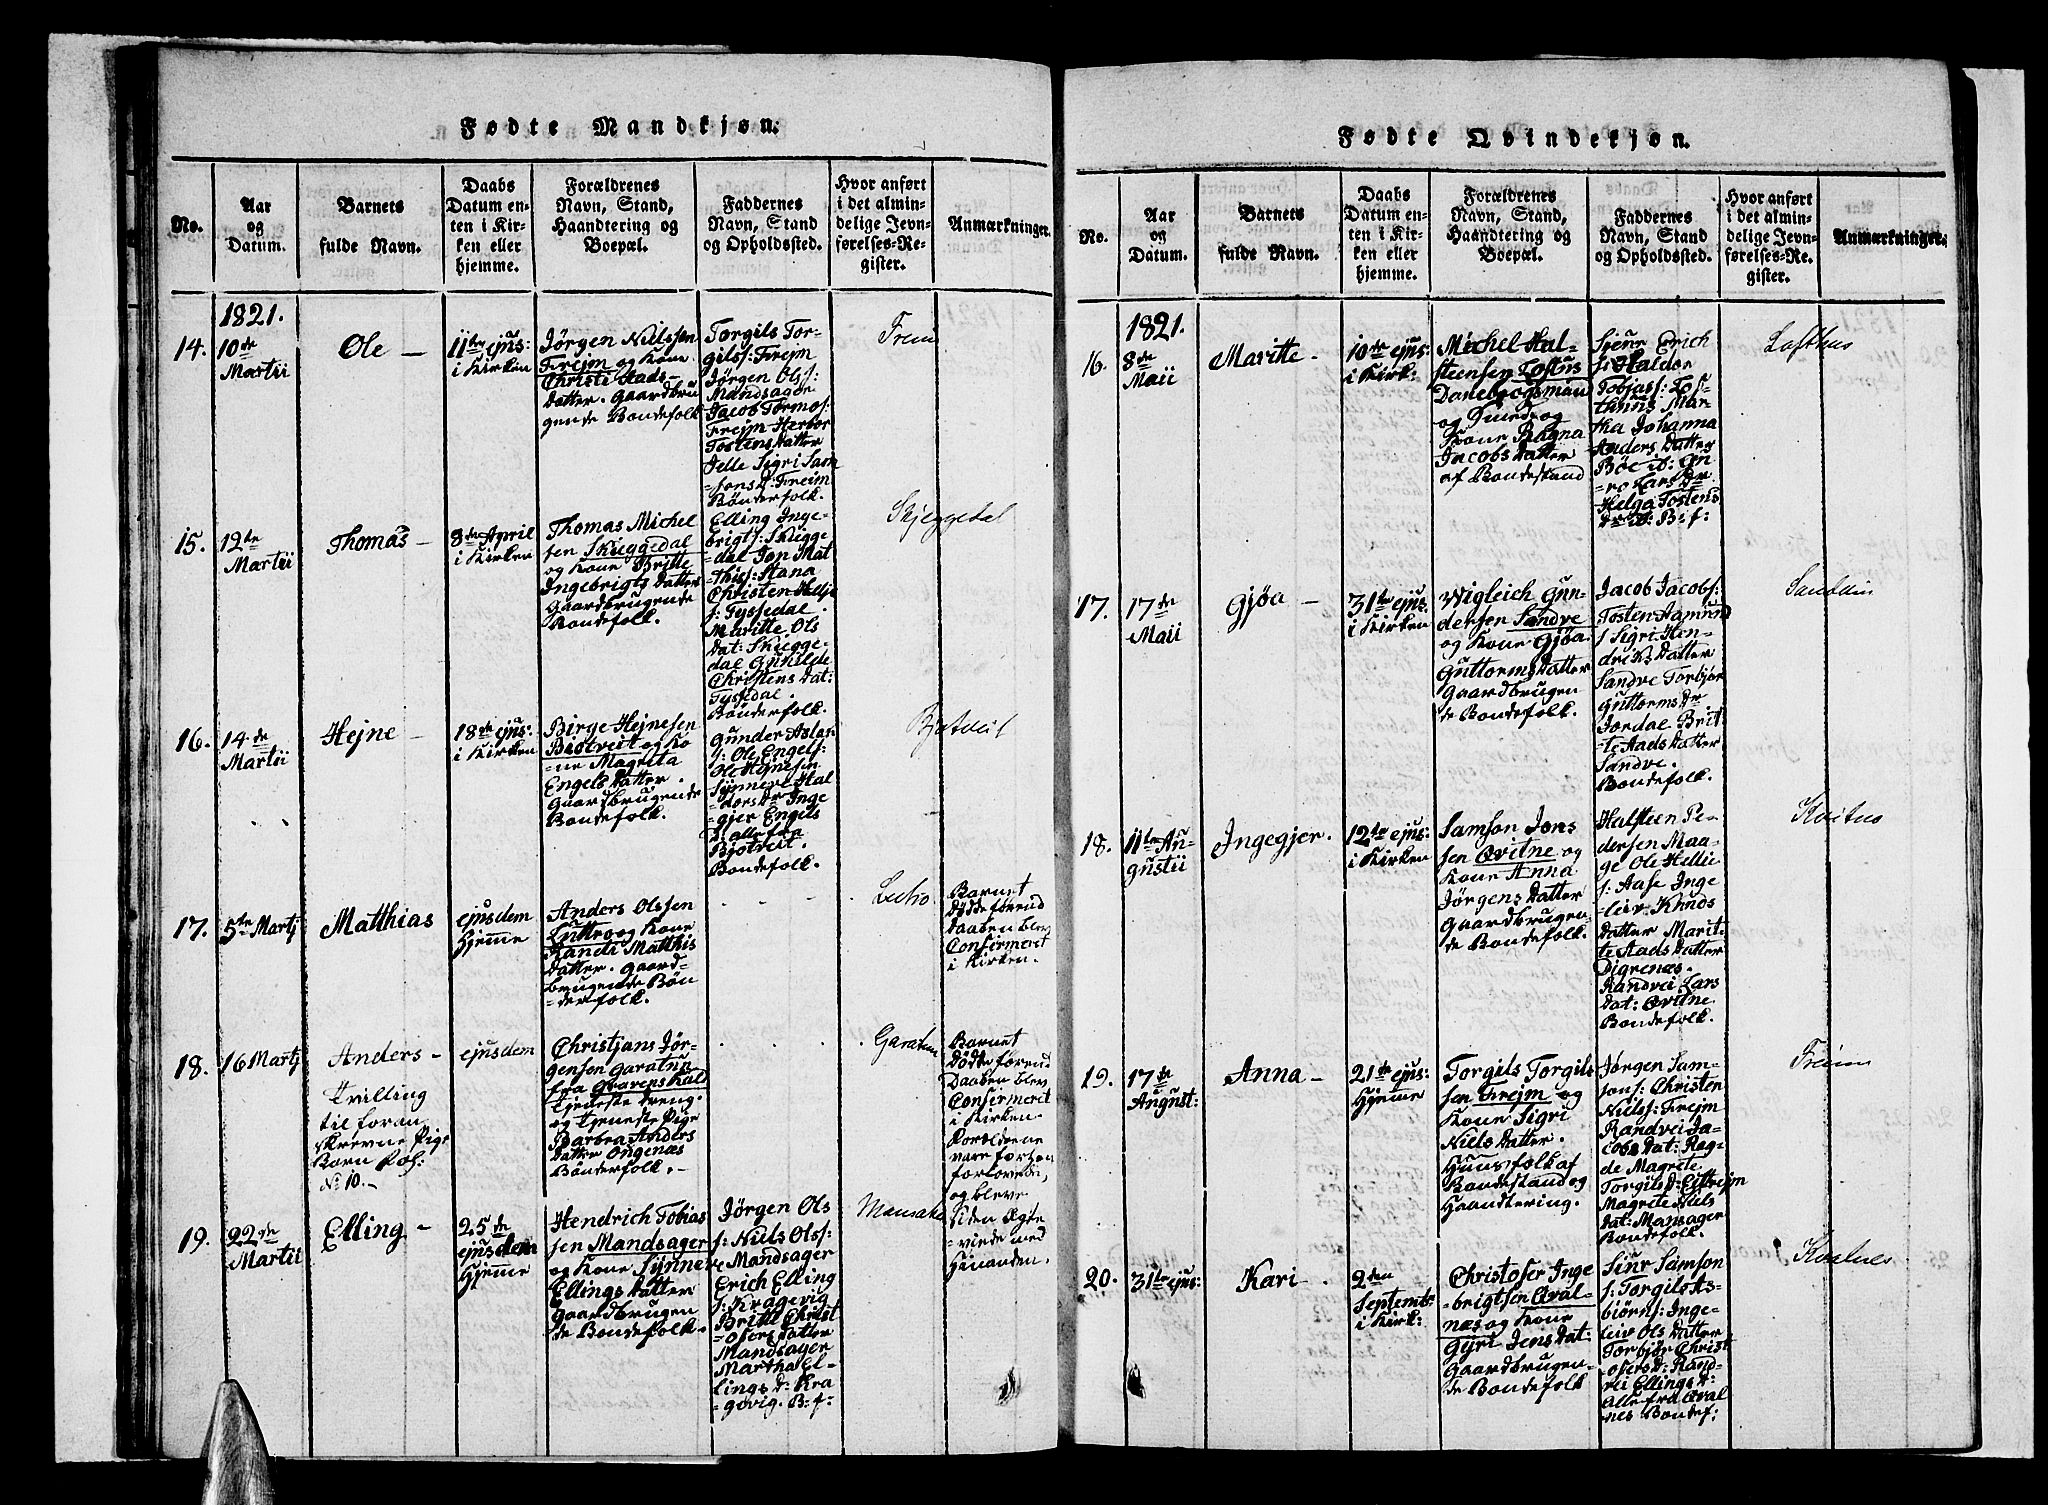 Fødte Mandkjøn.
No.
Aar
og
Datum.
Barnets
fulde Navn.
Daabs
Datum en-
ten i Kir-
ken eller
hjemme.
Forældrenes
Navn, Stand,
Haandtering og
Boepæl.
Faddernes
Navn, Stand
og Opholdssted.
Hvor anført
i det almin-
delige Jevn-
førelses-Re-
gister.
Anmærkninger.
1821.
14.
10de
Martii
Ole -
11te ejus:
i Kirken
Jörgen Nielssen
Frejm og Kone
Christi Aads-
datter. Gaardbru
gende Bondefolk
Torgils Tor-
gilss: Frejm
Jörgen Ols
s: Mandsager
Jacob Tormos:
Frejm Herbor
Tostensdatter
Jelle Sigri Sam
=sons d: Freim
Bönderfolk.
Freim
15.
12te
Martii
Thomas -
8de April
i Kirken
Thomas Michel
sen Skieggedal
og Kone Britte
Ingebrigts datter
Gaardbrugende
Bondefolk.
Elling Inge-
brigts: Skiegge
=dal Jon Mat
=thiss: Stana
Christen Hellje
s: Tyssedal.
Maritte Ols
dat: Skiegge-
dal Gunilde
Christens dat:
Tyssedal.
Bönderfolk.
Skjeggedal
16.
14de
Martii
Hejne -
18de ejus:
i Kirken
Birge Hejnesen
Biotveit og Ko
=ne Magreta
Engels datter.
Gaardbrugende
Bondefolk.
Gunder Aslac
s: Ole Engels:
Ole Hejnesen
Synneve Hal
dors dr Inge
=gjer Engels
d: alle fra
Bjotveit.
Bondefolk.
Bjotveit
17.
5te Martj
Matthias
ejusdem
Hjemme
Anders Olssen
Lutro og Kone
Randi Matthis
datter. Gaard-
brugende Bön
=derfolk.
Lutro
Barnet
dödde forend
Daaben blev
Confirmerit
i Kirken.
18.
16 Martj
Anders -
Tvilling
til foran
skrevne Pige
Barn Pol:
No 10. -
ejusdem
Christjans Jör-
gensen Garatun
fra Qvarens Kald
Tjeneste dreng.
og Tjeneste Pige
Barbra Anders
datter Ongenæs
Bönderfolk. -
Garatun
Barnet
dödde forend
Daaben blev
Confirmerit
i Kirken.
Foreldrene
vare forhen
forlovede,
og bleve
siden Ægte
=viede med
hinanden.
19.
22de
Martii
Elling -
25de
ejusdem
Hjemme
Hendrich Tobias
sen Mandsager
og Kone Synneve
Ellings datter
Gaardbrugen
de Bondefolk.
Jörgen Ols
s: Niels Olss:
Mandsager
Erich Elling
s: Kragevig
Britte Christ
=ofers datter
Mandsager
Martha El-
lings d: Kra
=gevig. B: f:
Mansaker
Fødte Qvindekjøn.
No.
Aar
og
Datum.
Barnets
fulde Navn.
Daabs
Datum en-
ten i Kir-
ken eller
hjemme.
Forældrenes
Navn, Stand,
Haandtering og
Boepæl.
Faddernes
Navn, Stand
og Opholdssted.
Hvor anført
i det almin-
delige Jevn-
førelses-Re-
gister.
Anmærkninger.
1821.
16.
8de
Maii
Maritte -
10de ejus:
i Kirk:
Michel Hal-
steensen Tostus
Danebrogsmand
og Kone
Ragna
Jacobs datter
af Bondestand
Sjeur Erich
s: Haldor
Tobjass: Tos-
thuus Mar-
tha Johanna
Anders datter
Böe
Lars Dr
Helga Tostens
dr ib: B: f:
Lofthus
17.
17de
Maii
Gjøa -
31te ejus:
i Kirken
Wigleich Gun-
dersen Sandve
og Kone Gjøa
Guttorms datter
Gaardbrugen
de Bondefolk.
Jacob Jacobs:
Tosten Aamund
s: Sigri Hen-
drik datter
Sandve Torbjör
Guttorms dr
Jordal Brit-
te Aads datter
Sandve.
Bondefolk.
Sandvin
18.
11te Au-
gustii
Ingegjer.
12te ejus:
i Kirken
Samson Jons
sen Qvitne og
Kone Anna
Jörgens datter
Gaardbrugen-
de Bondefolk.
Halsteen Pe-
dersen Maa-
ge Ole Hellie
s: Aase Inge
=leiv Knuds
datter Marit-
te Aads datter
Digrenæs.
Randvei Lars
dat: Qvitne
Bondefolk.
Kvitno
19.
17de
August:
Anna -
21de ejus:
Hjemme
Torgils Torgils
sen Frejm og
Kone Sigri
Niels datter.
Huusfolk af
Bondestand og
Haandtering.
Jörgen Sam-
sons: Christen
Niels: Frejm
Randvei Ja-
cobs dat: Rag-
de Magrete
Torgils d: Eittrejm
Magrete Niels
dat: Mansager
Bondefolk.
Freim
20.
31te ejus:
Kari -
2den
Septembr:
i Kirk:
Christofer Inge
brigtsen Qval-
næs og Kone
Gyri Jens dat:
Gaardbrugen-
de Bondefolk
Siur Samson
s: Torgils As-
biörns: Inge-
leiv Ols datter
Torbjör Christ
ofers d: Rand-
vei Ellings d:
alle fra Qval
nes Bondef:
Kvalnes